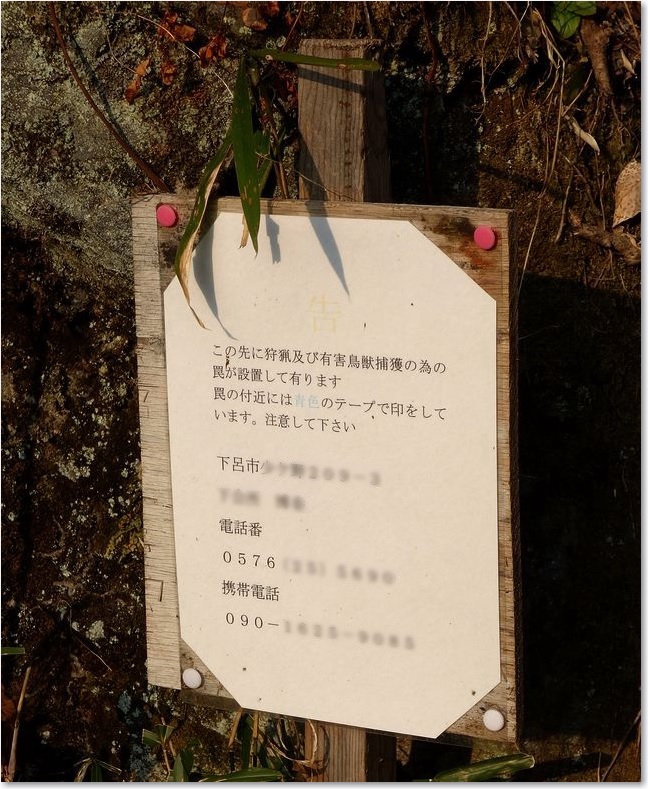 告
この先に狩猟及び有害鳥獣捕獲の為の
罠が設置して有ります
罠の付近には青色のテープで印をして
います。注意して下さい
下呂市
電話番
０５７６
携帯電話
０９０－